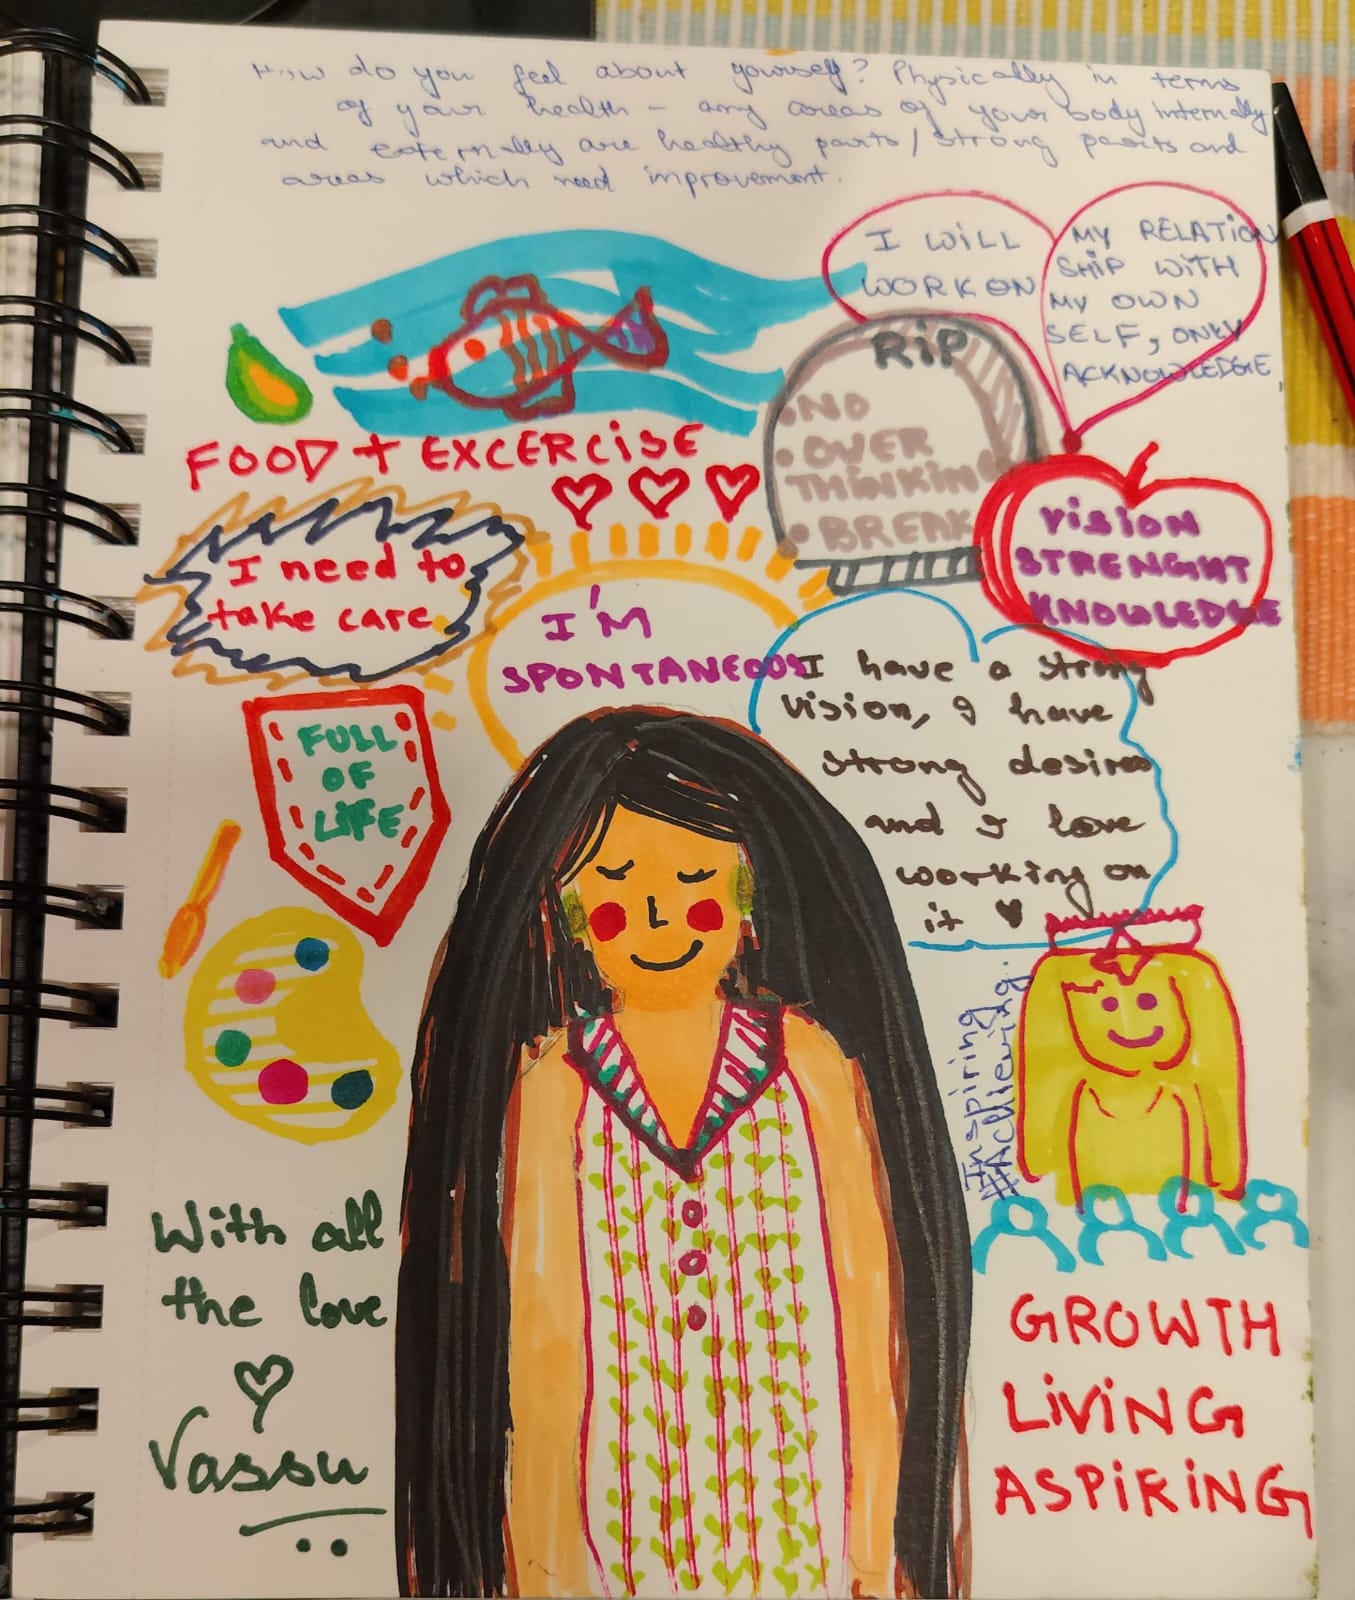 How do you feel about yourself? Physically in terms
of your health - any areas of your body internally
and externally are healthy parts/strong parts and
areas which need improvement.
I WILL
WORK ON
MY RELATION
SHIP WITH
MY OWN
SELF, ONLY
ACKNOWLEDGE,
RIP
• NO
• OVER
THINKING
• BREAK
FOOD + EXCERCISE
VISION
STRENGHT
KNOWLEDGE
I need to
take care
I'M
SPONTANEOUS
I have a strong
vision, I have
strong desires
and I love
working on
it ♥
FULL
OF
LIFE
Inspiring.
#Achieving
With all
the love
Vassu
GROWTH
LIVING
ASPIRING